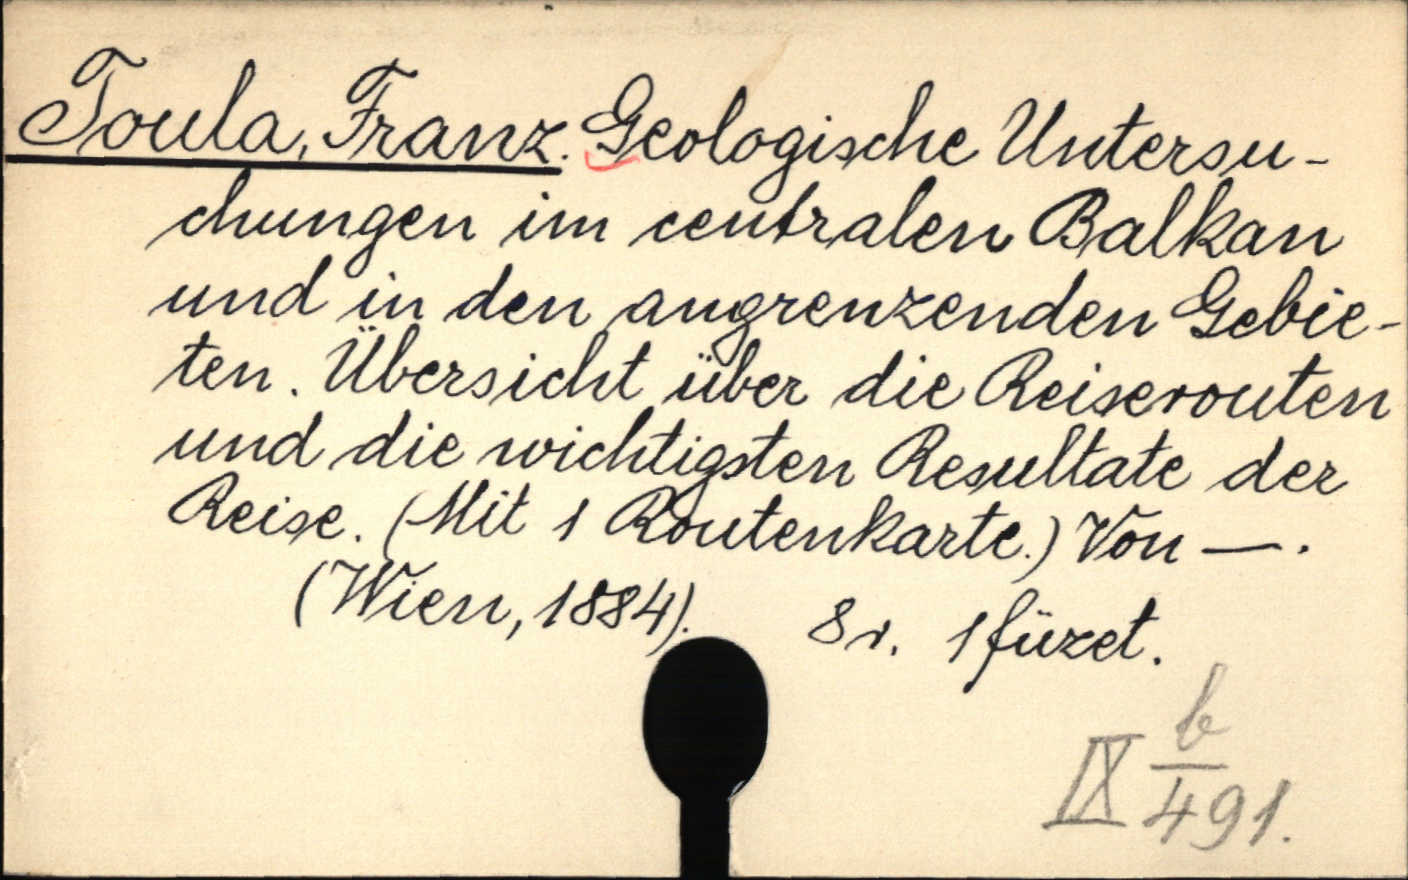 Toula, Franz. Geologische Untersu-
chungen im centralen Balkan
und in den angrenzenden Gebie-
ten. Übersicht über die Reiserouten
und die wichtigsten Resultate der
Reise. (Mit 1 Routenkarte.) Von —.
(Wien, 1884). 8r. 1 füzet.
IX b/491.